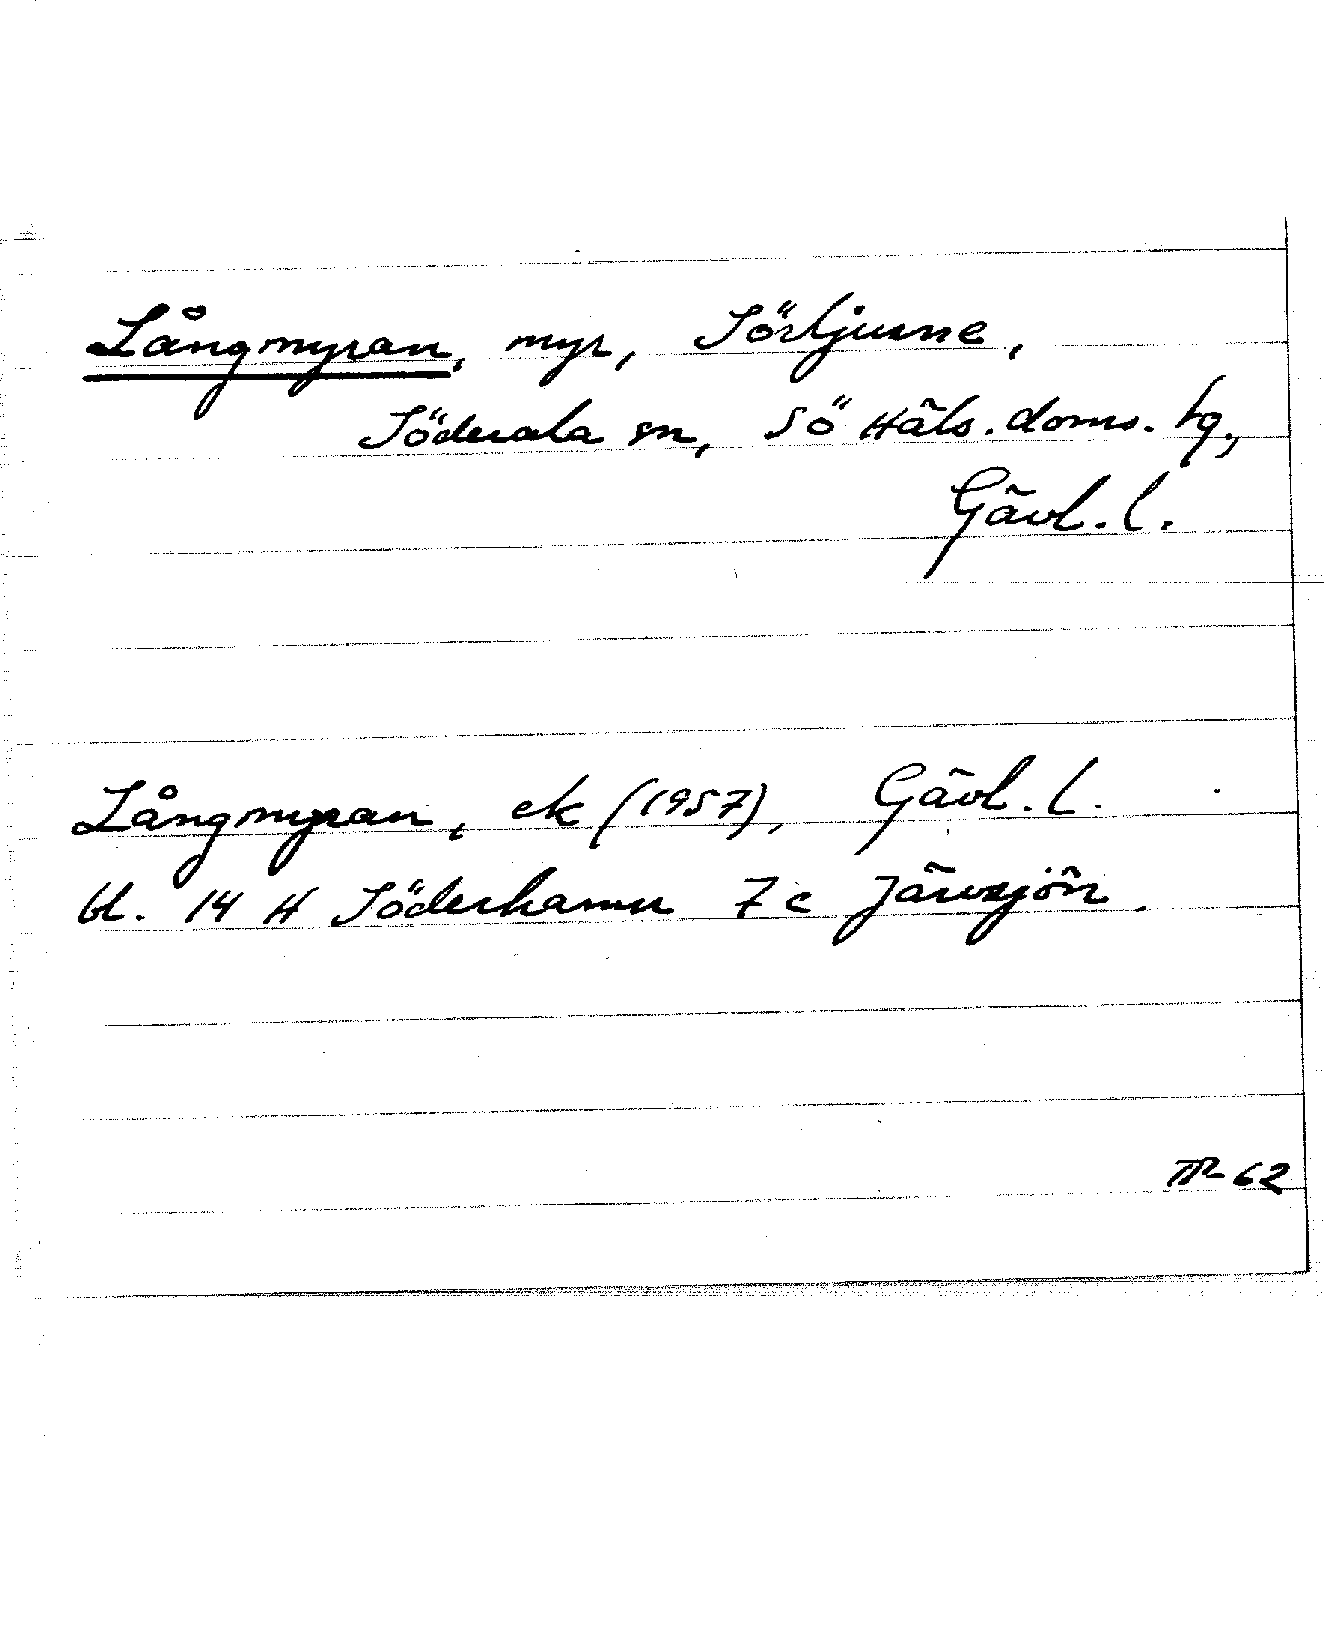 Långmyran, myr, Sörljusne,
Söderala sn, Sö Häls. doms. tg,
Gävl. l.
Långmyran, ek (1957), Gävl. l.
bl. 14 H Söderhamn 7 c Järvsjön.
62